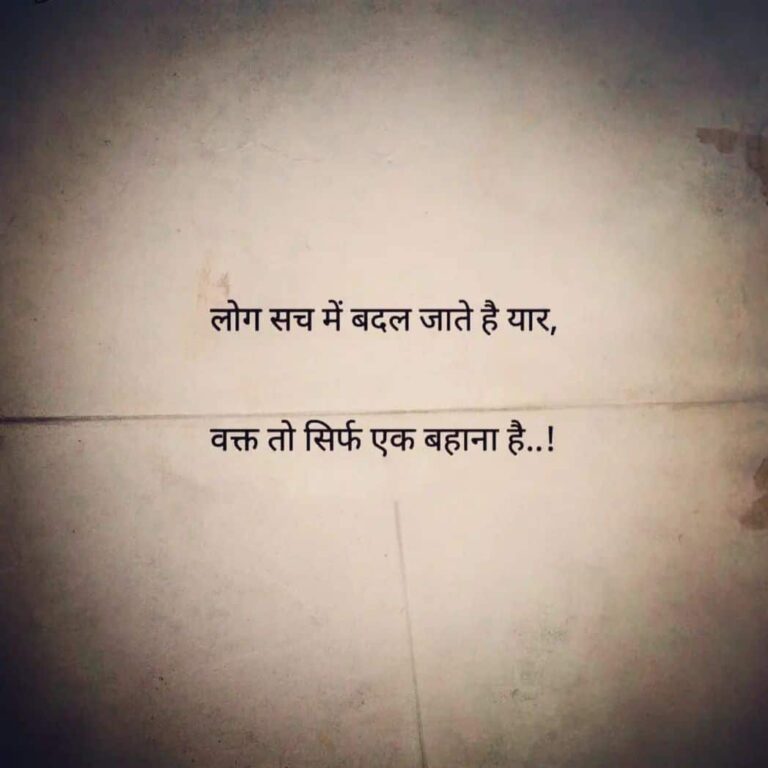 लोग सच में बदल जाते है यार,
वक्त तो सिर्फ एक बहाना है..!